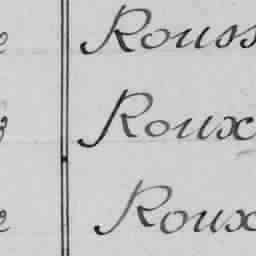 Rouss
Roux
Roux